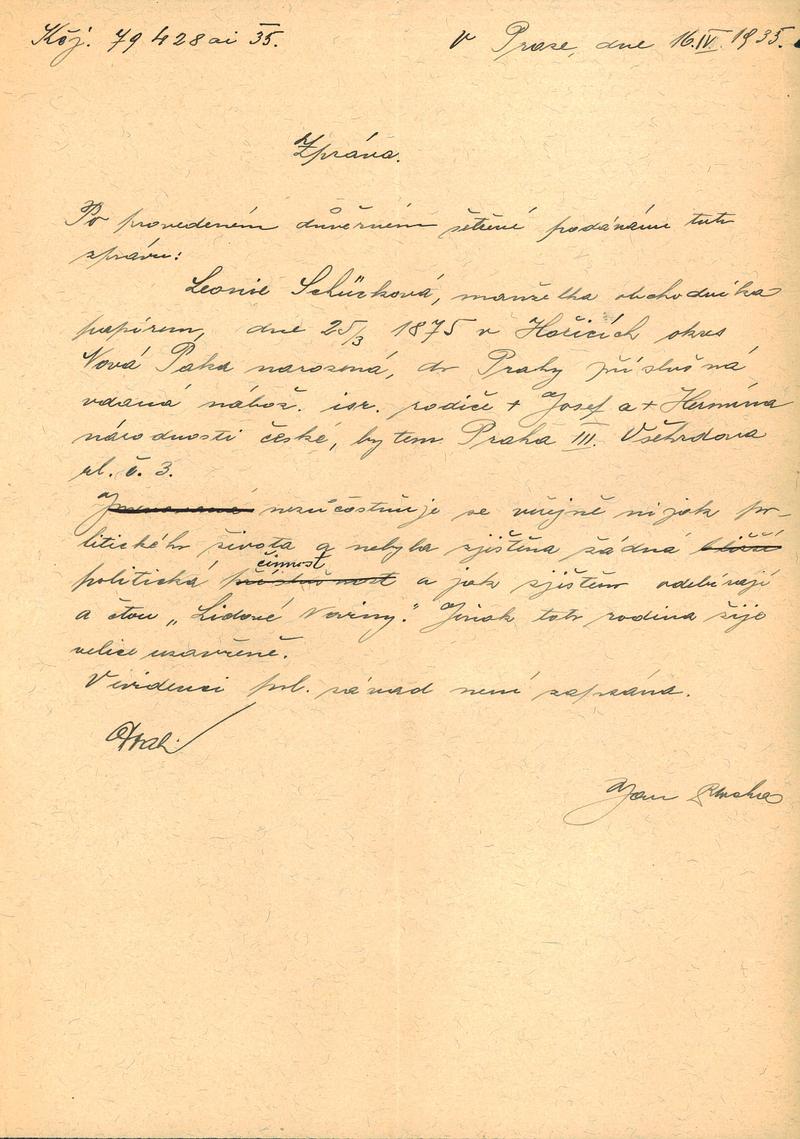 Kčj. 79428 ai 35. V Praze, dne 16.IV. 1935.
Zpráva.
Po provedeném důvěrném šetření podávám tuto
zprávu:
Leonie Schücková, manželka obchodníka
papírem, dne 25/3 1875 v Hořicích okres
Nová Paka narozená, do Prahy příslušná
vdaná nábož. isr. rodiče + Josef a + Hermína
národnosti české, bytem Praha III. Všehrdova
ul. č. 3.
Jmenovaná nezúčastňuje se veřejně nijak po-
litického života a nebyla zjištěna žádná bližší
činnost
politická příslušnost a jak zjištěno odebírají
a čtou „Lidové Noviny." Jinak tato rodina žije
velice uzavřeně.
V evidenci pol. závad není zapsána.
Jan